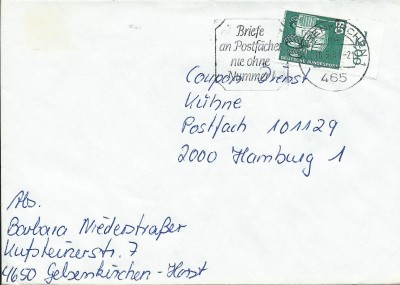 Briefe
an Postfächer
nie ohne
Nummer
60
DEUTSCHE BUNDESPOST
465
Coupon Dienst
Kühne
Postfach 101129
2000 Hamburg 1
Abs.
Barbara Niederstraßer
Kufsteinerstr. 7
4650 Gelsenkirchen-Horst